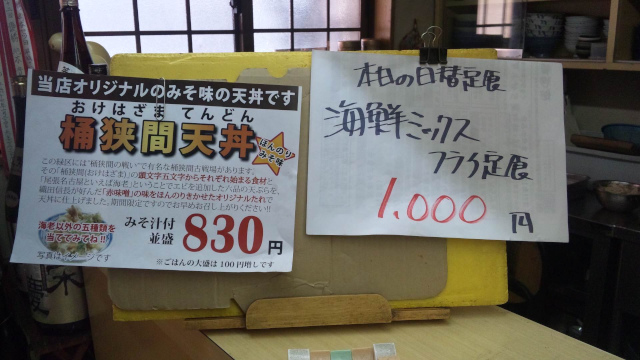 当店オリジナルのみそ味の天丼です
おけはざま てんどん
桶狭間天丼
ほんのり
みそ味
この緑区には“桶狭間の戦い”で有名な桶狭間古戦場があります。
その「桶狭間(おけはざま)」の頭文字五文字からそれぞれ始まる食材と、
「尾張名古屋といえば海老」ということでエビを追加した八品の天ぷらを、
織田信長が好んだ「赤味噌」の味をほんのりきかせたオリジナルたれで
天丼に仕上げました。期間限定ですのでお早めお召し上がりください!!
海老以外の五種類を
当ててみてね!!
写真はイメージです
みそ汁付
並盛 830円
※ごはんの大盛は100円増しです
本日の日替定食
海鮮ミックス
フライ定食
1.000円